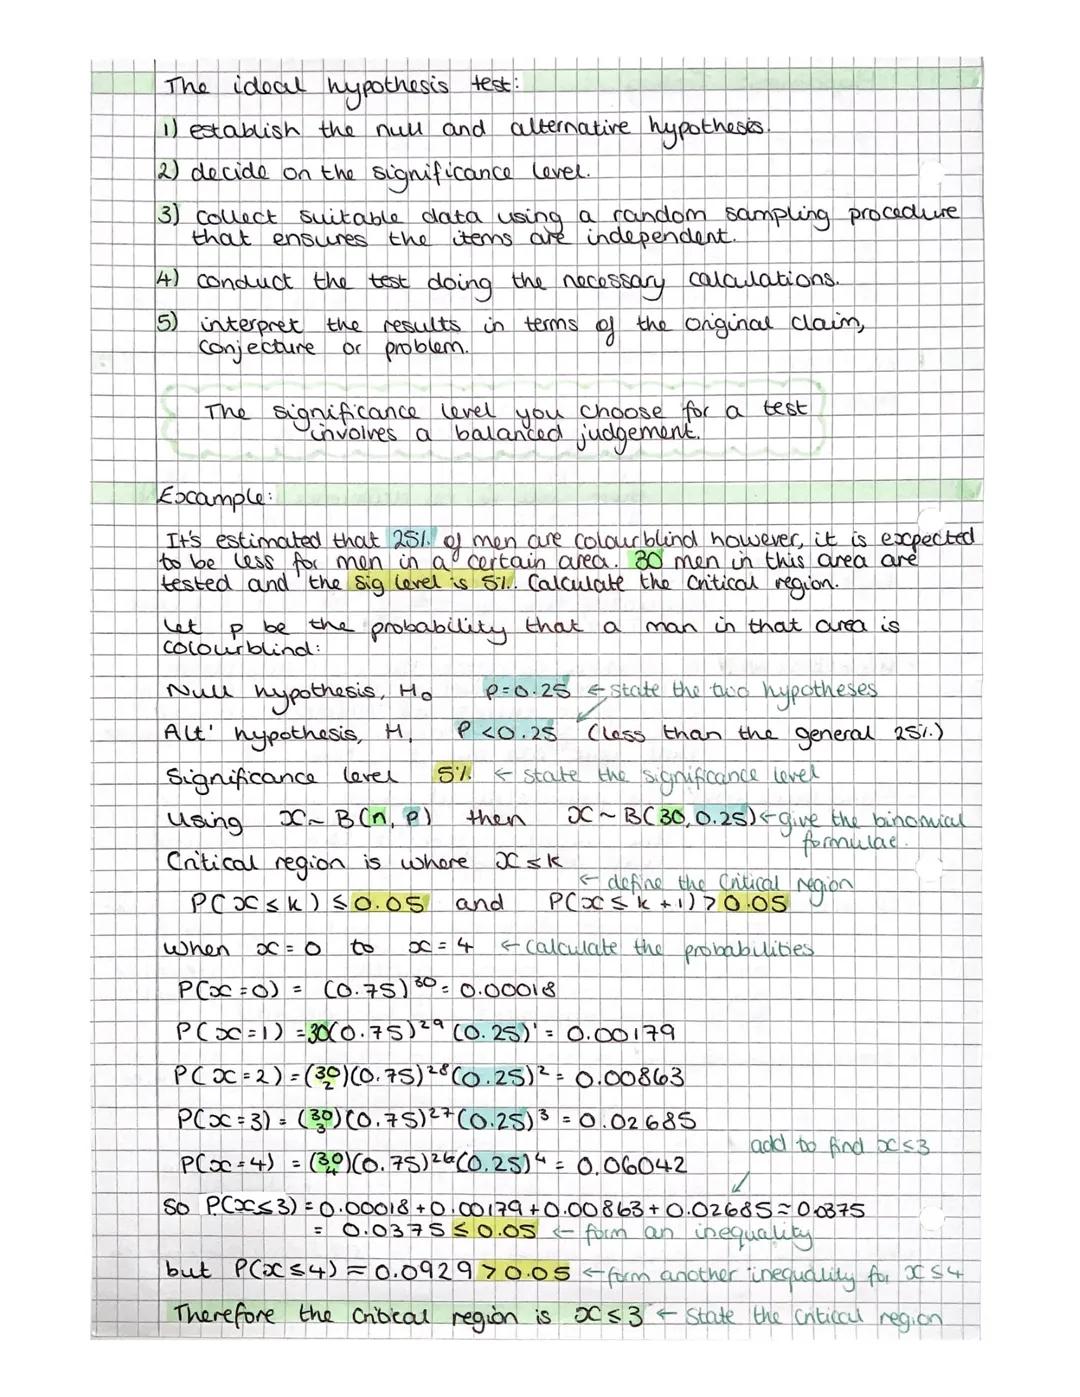 The ideal hypothesis test:
1) establish the null and alternative hypotheses.
2) decide on the significance level.
3) collect suitable data using a random sampling procedure
that ensures the items are independent.
4) conduct the test doing the necessary calculations.
5) interpret the results in terms of the original claim,
conjecture or problem.
The significance level you choose for a test
involves a balanced judgement.
Example:
It's estimated that 25% of men are colourblind however, it is expected
to be less for men in a certain area. 30 men in this area are
tested and the sig level is 5%. Calculate the critical region.
Let p be the probability that a man in that area is
colourblind:
Null hypothesis, H₀ p=0.25 ← state the two hypotheses
Alt' hypothesis, H₁ P<0.25 (less than the general 25%)
Significance level 5% ← state the significance level
Using x~B(n, p) then x~B(30, 0.25) ← give the binomial
formulae.
Critical region is where x≤k
← define the critical region
P(x≤k) ≤0.05 and P(x≤k+1)>0.05
When x=0 to x=4 ← calculate the probabilities
P(x=0) = (0.75)³⁰ = 0.00018
P(x=1) = 30(0.75)²⁹(0.25)¹ = 0.00179
P(x=2) = (30 2)(0.75)²⁸(0.25)² = 0.00863
P(x=3) = (30 3)(0.75)²⁷(0.25)³ = 0.02685
add to find x≤3
P(x=4) = (30 4)(0.75)²⁶(0.25)⁴ = 0.06042
So P(x≤3) = 0.00018+0.00179+0.00863+0.02685≈0.0375
= 0.0375≤0.05 ← form an inequality
but P(x≤4) = 0.0929>0.05 ← form another inequality for x≤4
Therefore the critical region is x≤3 ← State the critical region